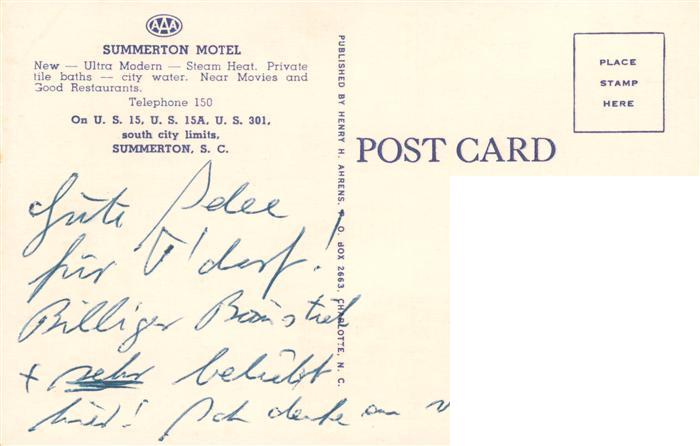 AAA
SUMMERTON MOTEL
New — Ultra Modern — Steam Heat. Private
tile baths — city water. Near Movies and
Good Restaurants.
Telephone 150
On U. S. 15, U. S. 15A, U. S. 301,
south city limits,
SUMMERTON, S. C.
PUBLISHED BY HENRY H. AHRENS, P. O. BOX 2663, CHARLOTTE, N. C.
POST CARD
PLACE
STAMP
HERE
Gute Idee
für V'dorf!
Billiger Baustil
+ sehr beliebt
hier! Ich denke an